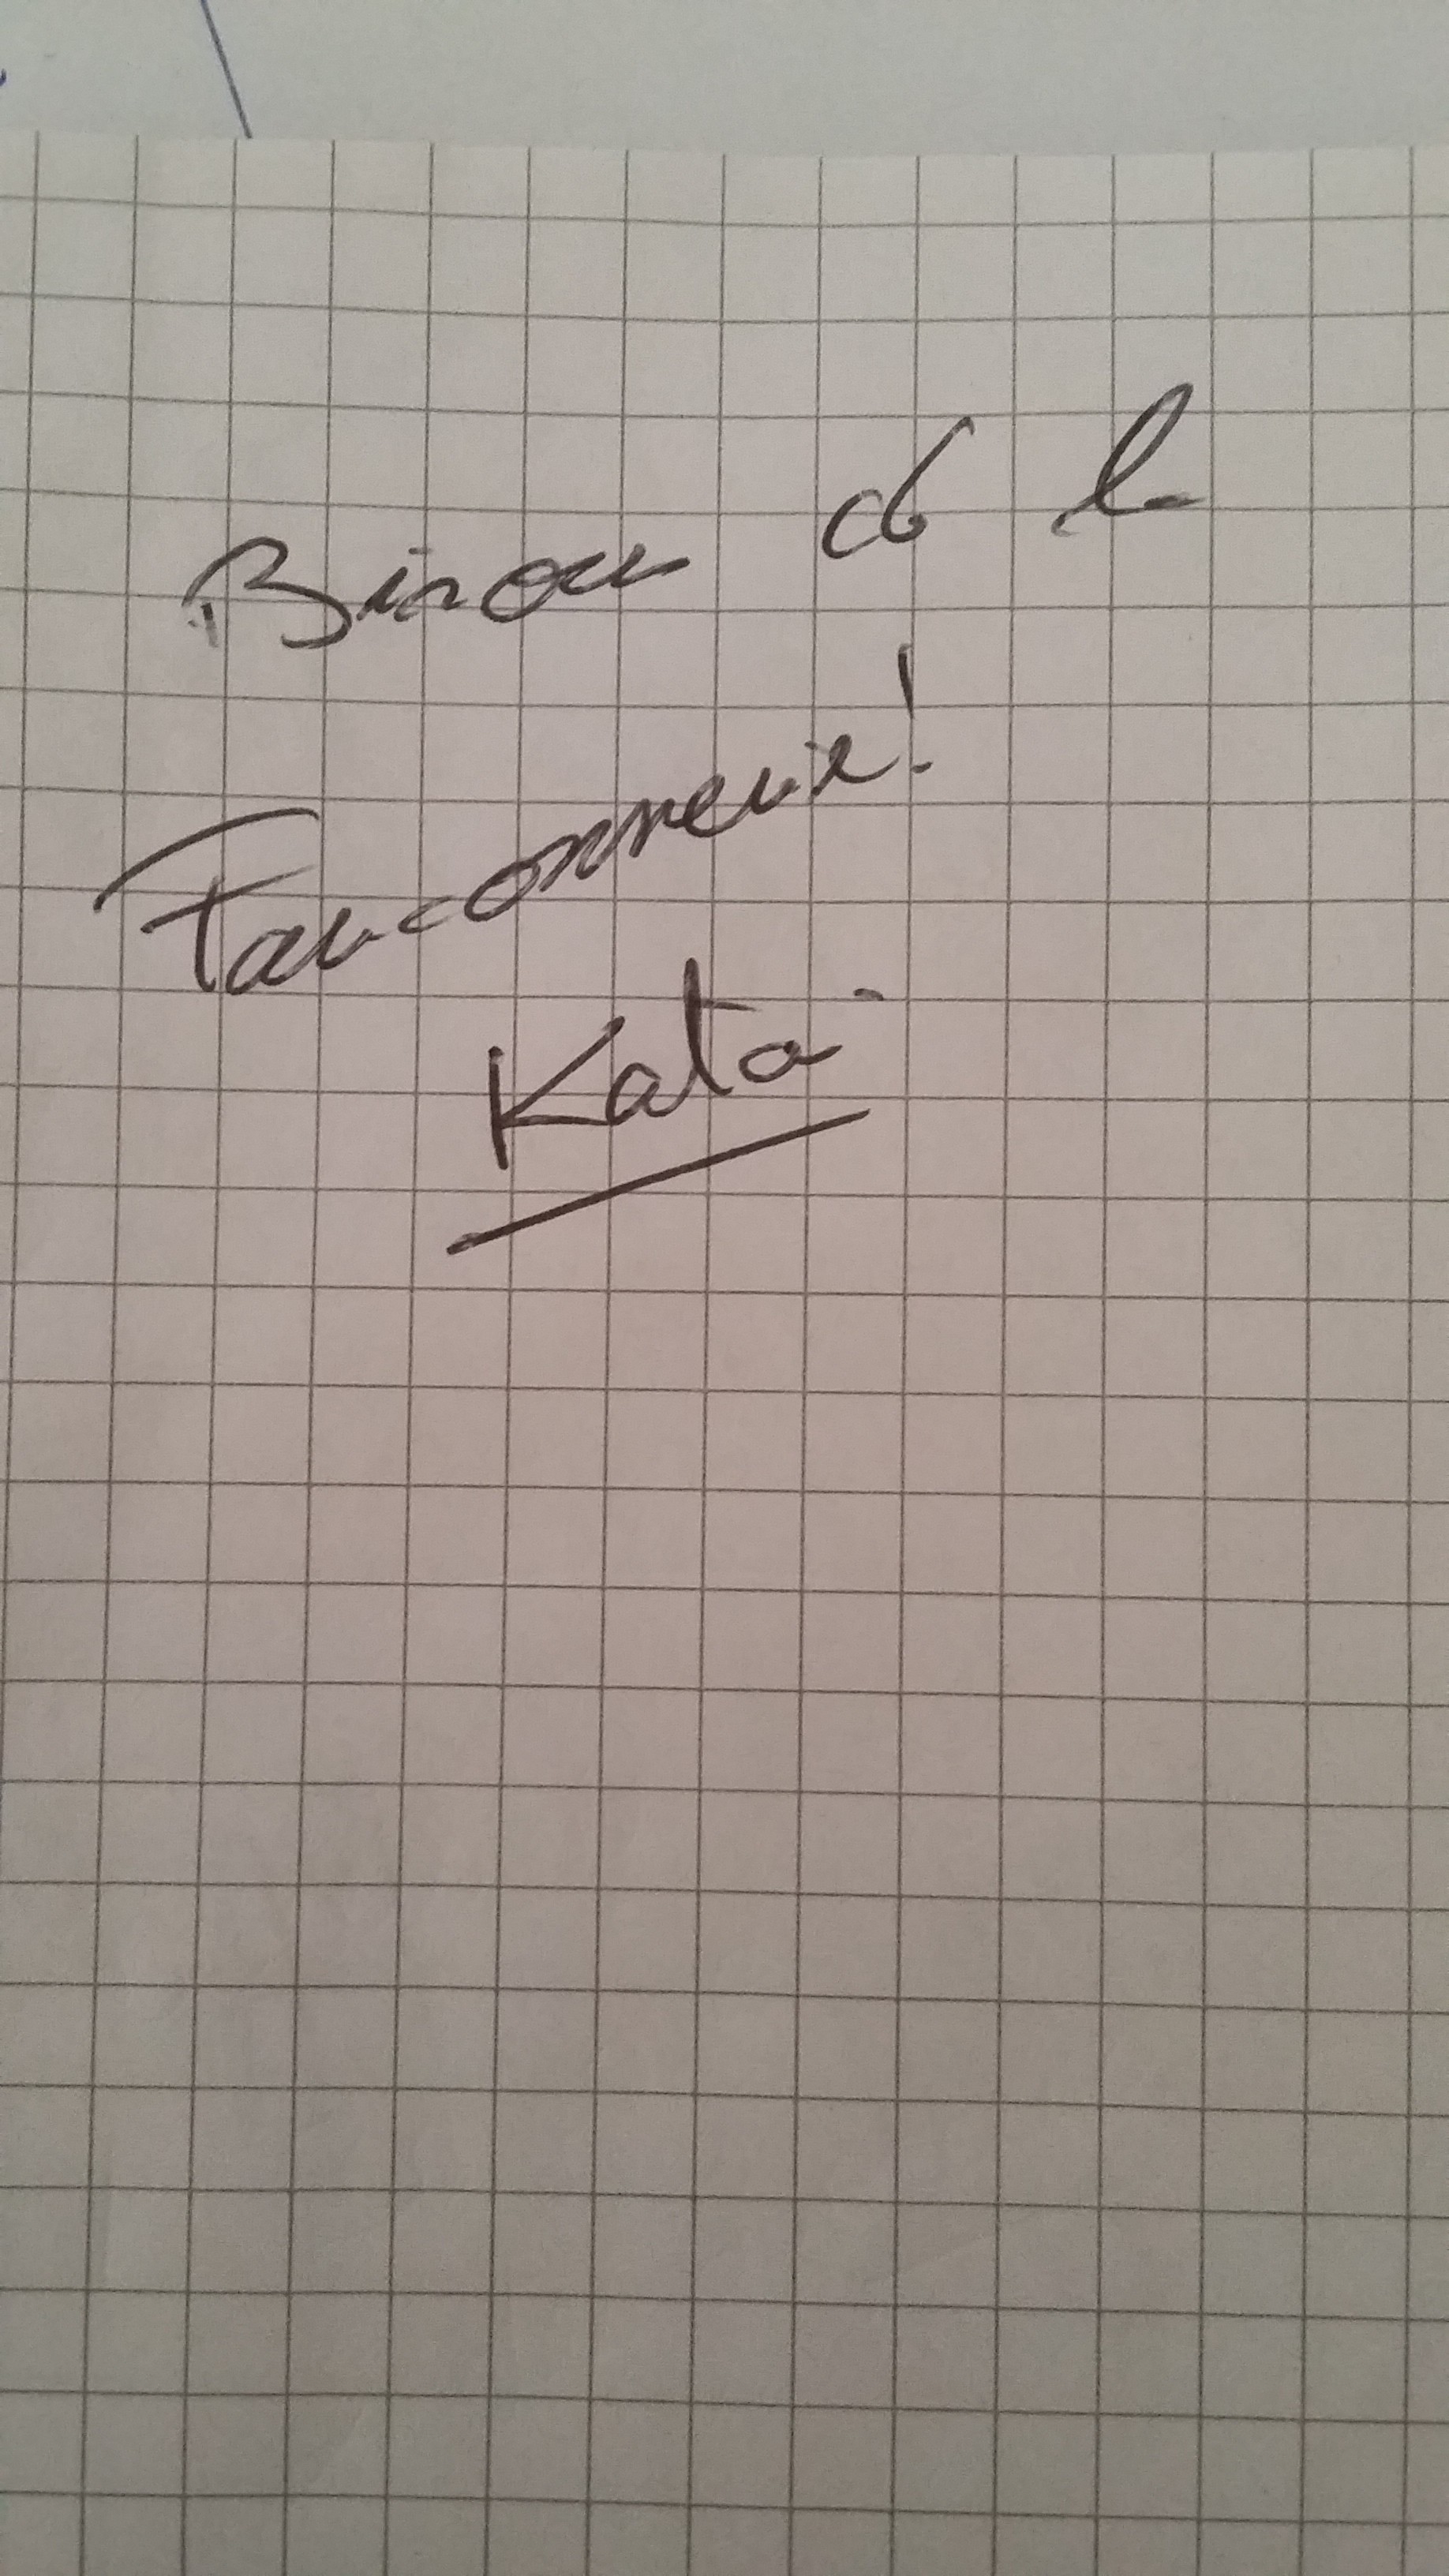 Bisou de la
Fauconnerie!
Kata